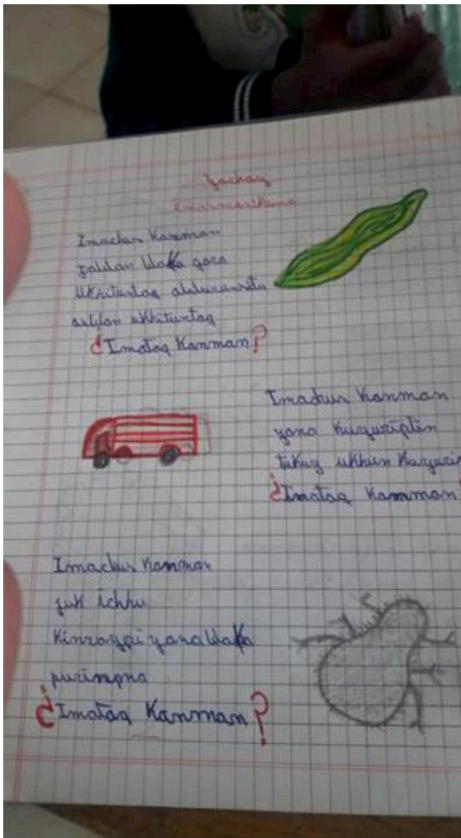 Yachay
Imasmarikuna
Imachus Kanman
waka qora
ukhituntaq
ukhituntaq
¿Imataq Kanman?
Imachus Kanman
yana kuyuriptin
tukuy ukhun kuyurin
¿Imataq Kanman
Imachus Kanman
juk ichhu
Kinrayпi yana waka
puringna
¿Imataq Kanman?